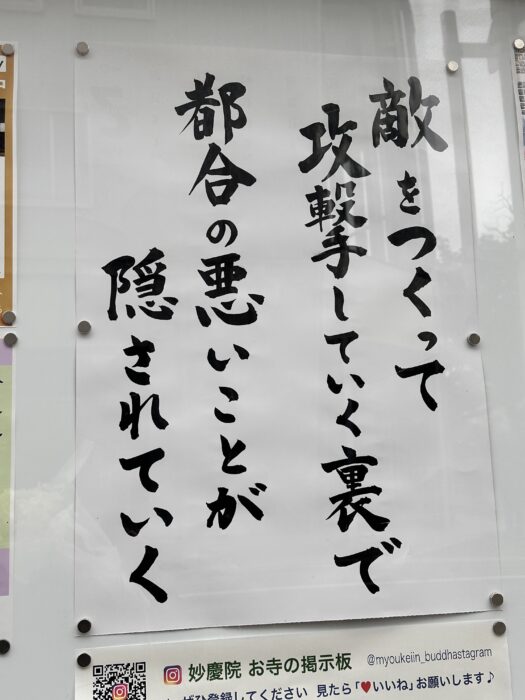 敵をつくって
攻撃していく裏で
都合の悪いことが
隠されていく
妙慶院 お寺の掲示板
@myoukeiin_buddhastagram
ぜひ登録してください 見たら「♥いいね」お願いします♪